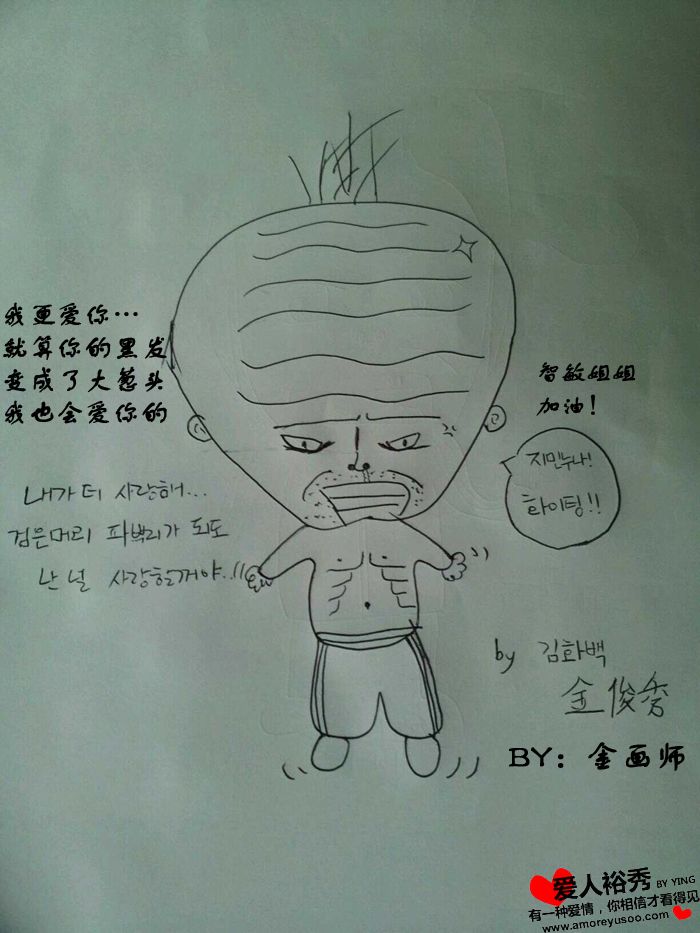 我更爱你…
就算你的黑发
变成了大葱头
我也会爱你的
智敏姐姐
加油！
지민누나!
화이팅!!
내가 더 사랑해...
검은머리 파뿌리가 되도
난 널 사랑할꺼야..!!
by 김화백
金俊秀
BY：金画师
爱人裕秀 BY YING
有一种爱情，你相信才看得见
www.amoreyusoo.com